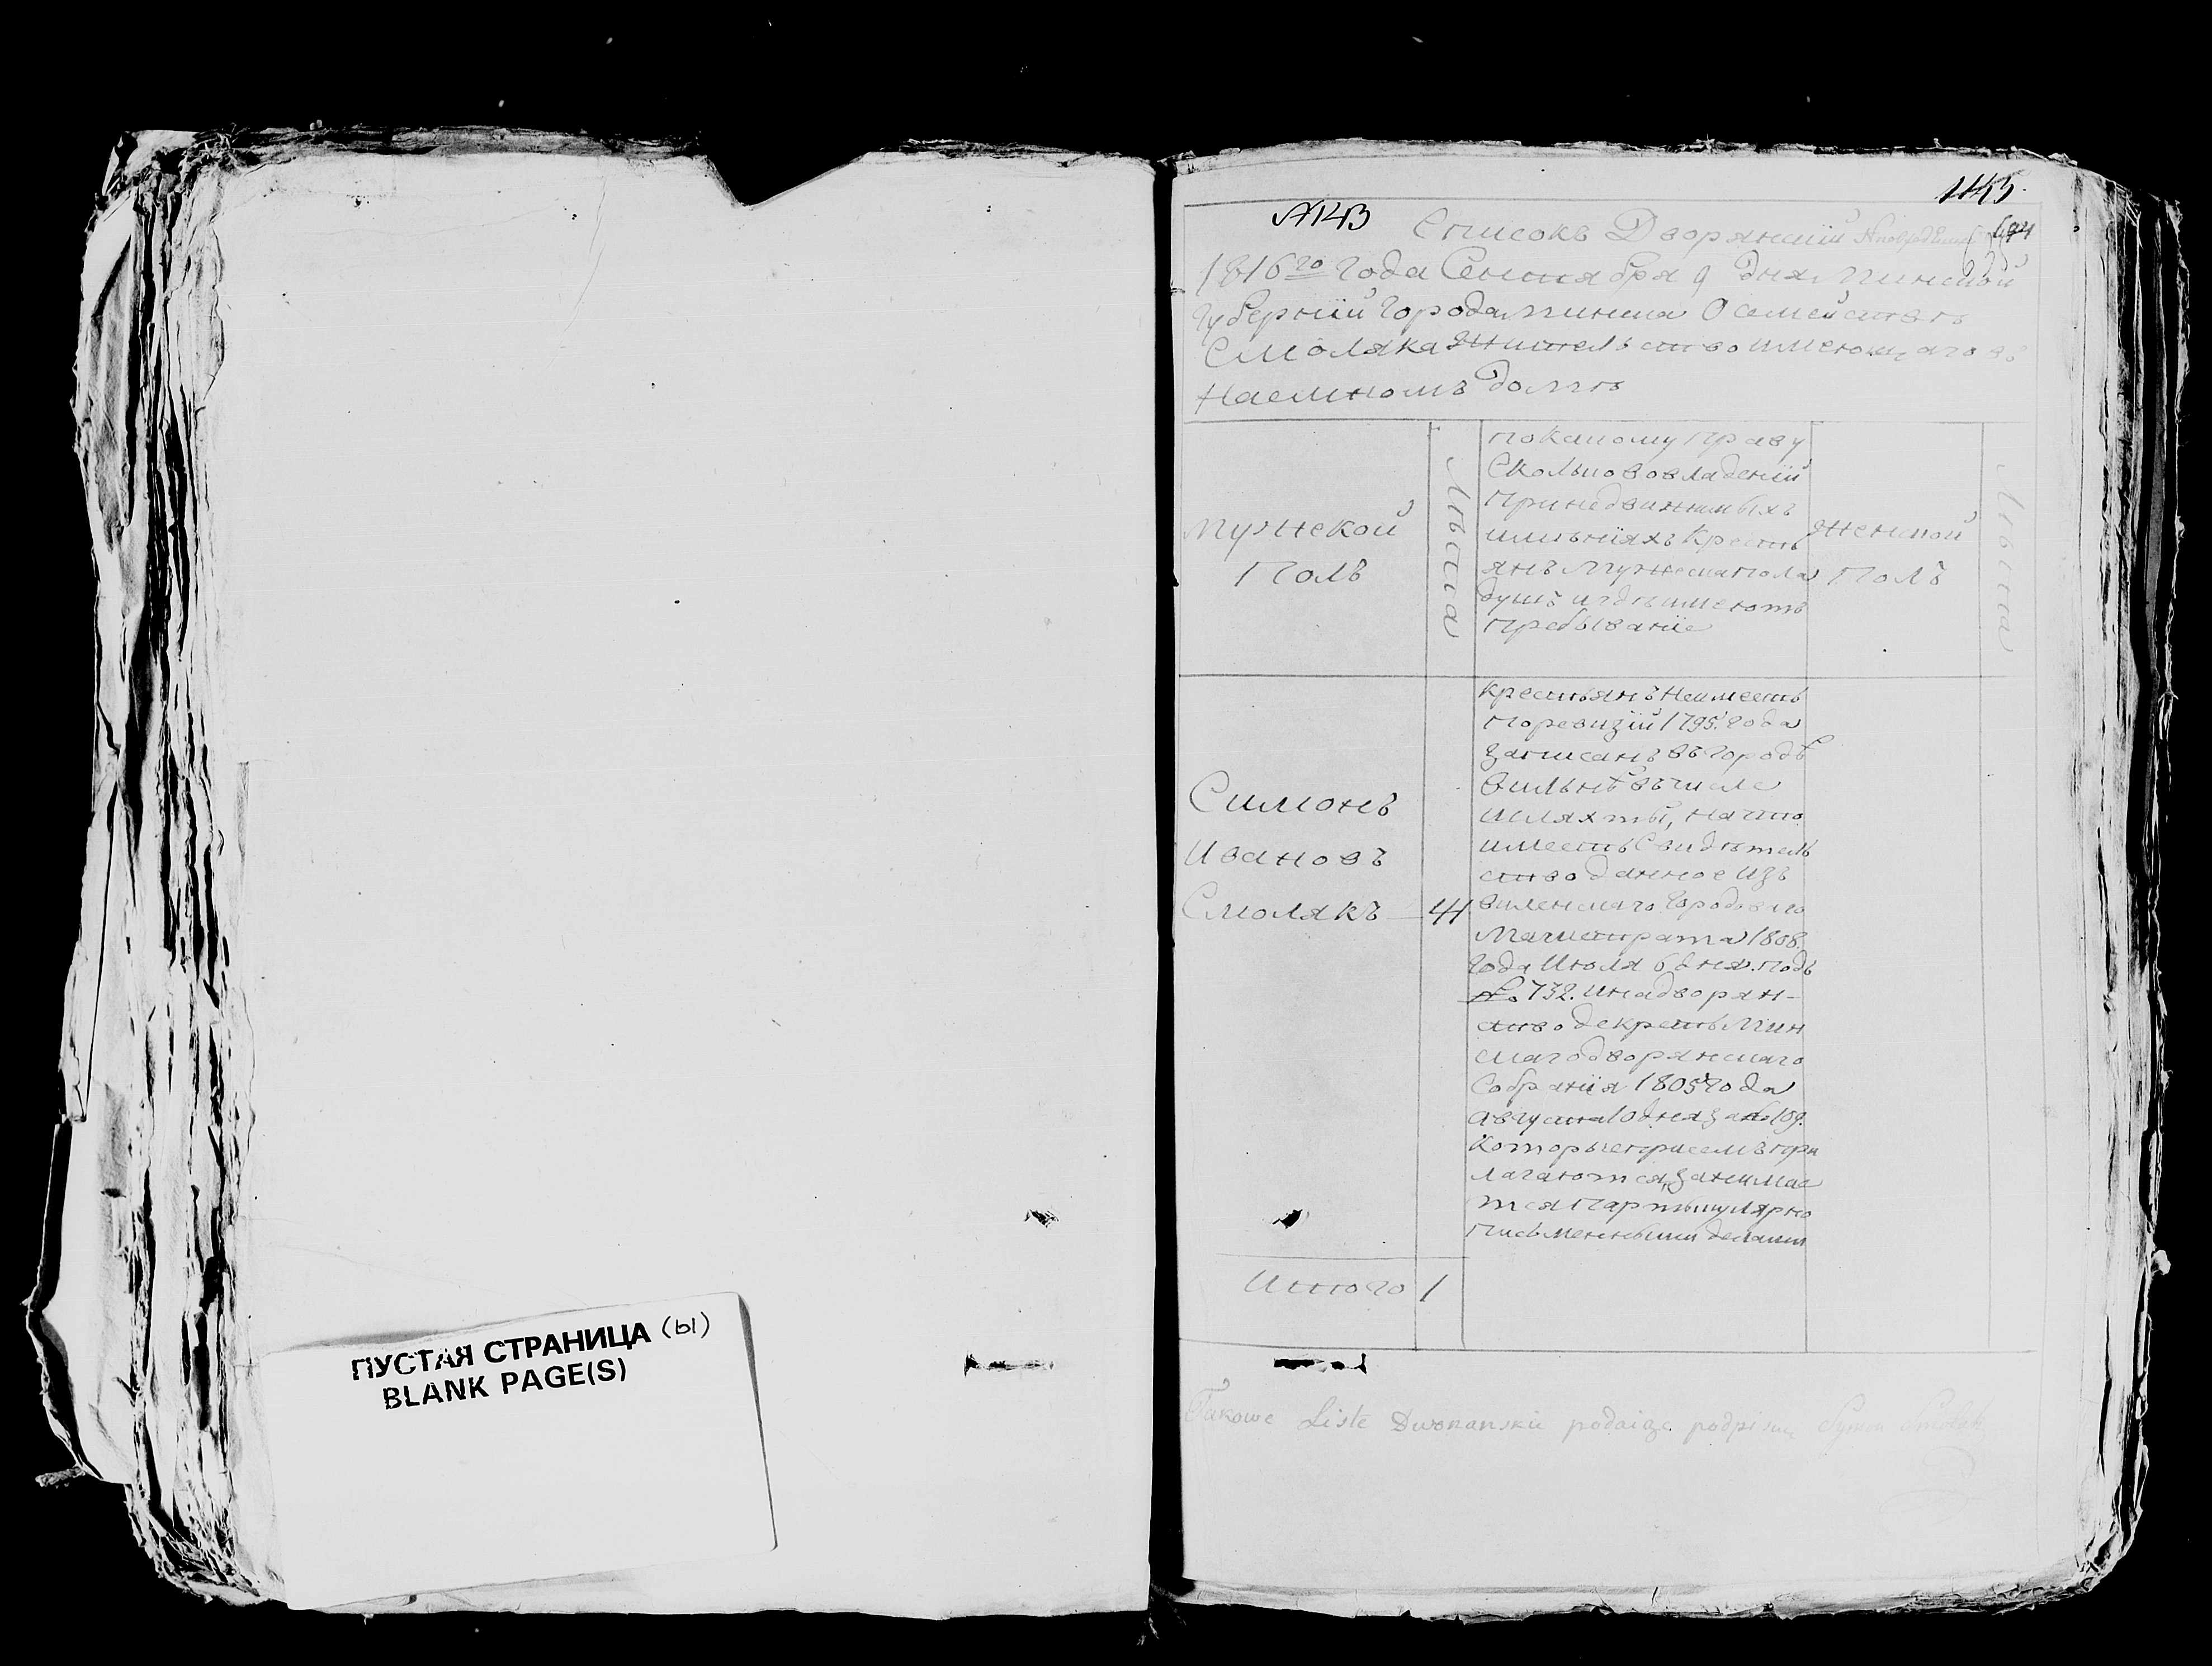 ПУСТАЯ СТРАНИЦА (ы)
BLANK PAGE(S)
1145.
№143 Списокъ Дворянскій
1816го Года Сентября 9 дня Минской
Губерніи Города Минска О семействѣ
Смоляка Жительство имеющаго въ
Наемномъ домѣ
Мужской
Полъ
Лѣта
Покакому Праву
Сколько во владеніи
При недвижимыхъ
имѣніяхъ Кресть
янъ Мужеска пола
душъ и гдѣ имеютъ
пребываніе
Женской
Полъ
Лѣта
Симонъ
Ивановъ
Смолякъ 41
Крестьянъ Неимеетъ
По ревизіи 1795. года
Записанъ въ городѣ
Вильнѣ въ числе
Шляхты, на что
имеетъ Свидѣтель
ство данное изъ
Виленскаго Городоваго
Магистрата 1808.
Года Июля 6 дня. подъ
№ 732. и на дворян-
ство декретъ Мин
скаго дворянскаго
Собранія 1805 года
Августа 10 дня за № 109.
Которые при семъ при
лагаются, занимае
тся Партыкулярно
Письменными делами
Итого 1
Takowe Liste Dworanskie podaiąc podpisuię Symon Smolak